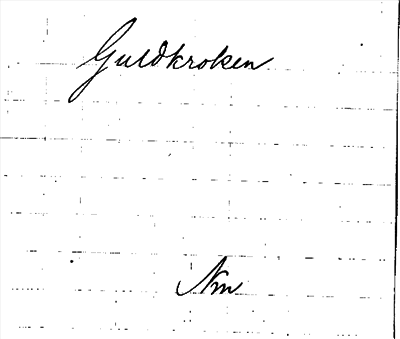 Guldkroken
Nm